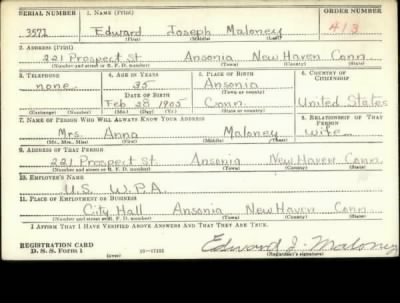 SERIAL NUMBER 1. NAME (Print) ORDER NUMBER
3571 Edward Joseph Maloney 413
(First) (Middle) (Last)
2. ADDRESS (Print)
221 Prospect St. Ansonia New Haven Conn.
(Number and street or R. F. D. number) (Town) (County) (State)
3. TELEPHONE 4. AGE IN YEARS 5. PLACE OF BIRTH 6. COUNTRY OF CITIZENSHIP
none 35 Ansonia
DATE OF BIRTH (Town or county)
Feb 28 1905 Conn. United States
(Exchange) (Number) (Mo.) (Day) (Yr.) (State or country)
7. NAME OF PERSON WHO WILL ALWAYS KNOW YOUR ADDRESS 8. RELATIONSHIP OF THAT PERSON
Mrs. Anna Maloney wife
(Mr., Mrs., Miss) (First) (Middle) (Last)
9. ADDRESS OF THAT PERSON
221 Prospect St. Ansonia New Haven Conn.
(Number and street or R. F. D. number) (Town) (County) (State)
10. EMPLOYER'S NAME
U.S. W.P.A.
11. PLACE OF EMPLOYMENT OR BUSINESS
City Hall Ansonia New Haven Conn.
(Number and street or R. F. D. number) (Town) (County) (State)
I AFFIRM THAT I HAVE VERIFIED ABOVE ANSWERS AND THAT THEY ARE TRUE.
REGISTRATION CARD
D. S. S. Form 1 (over) Edward J. Maloney
(Registrant's signature)